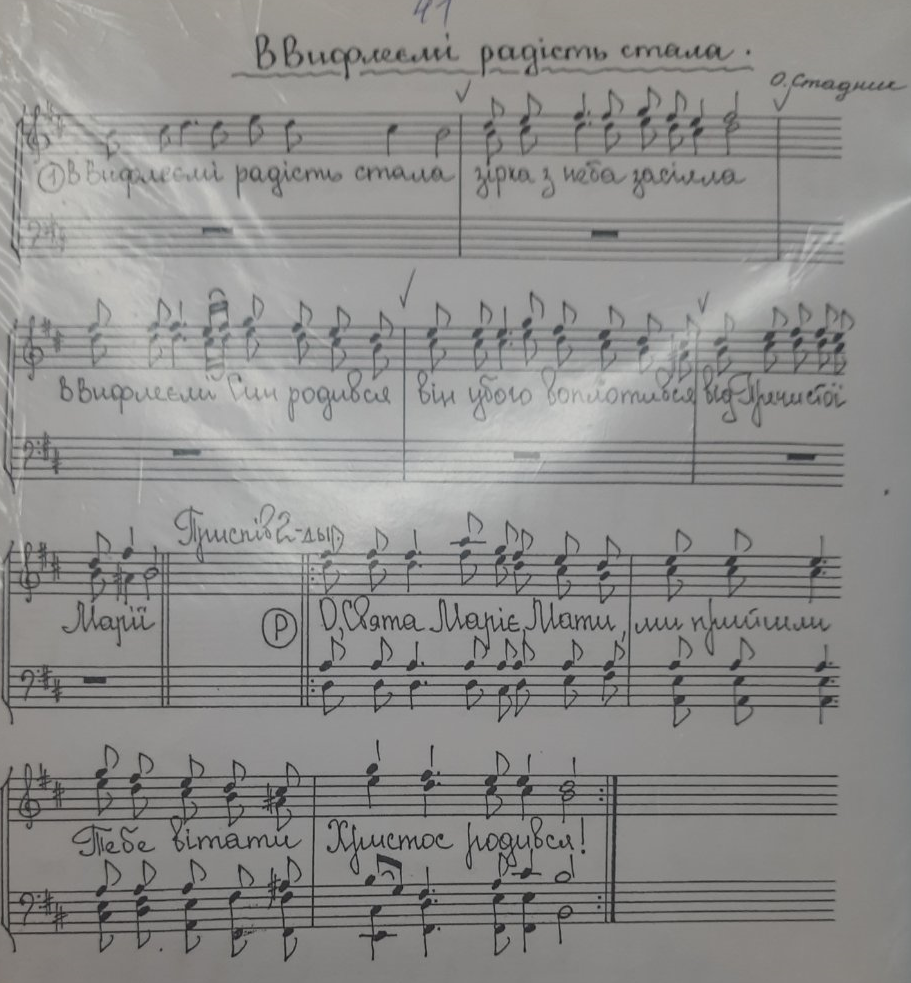 41
В Вифлеємі радість стала.
О. Стадник
① В Вифлеємі радість стала зірка з неба засіяла
В Вифлеємі Син родився він убого воплотився від Пречистої
Приспів 2-ды
Марії Ⓟ О, Свята Маріє, Мати, ми прийшли
Тебе вітати Христос родився!